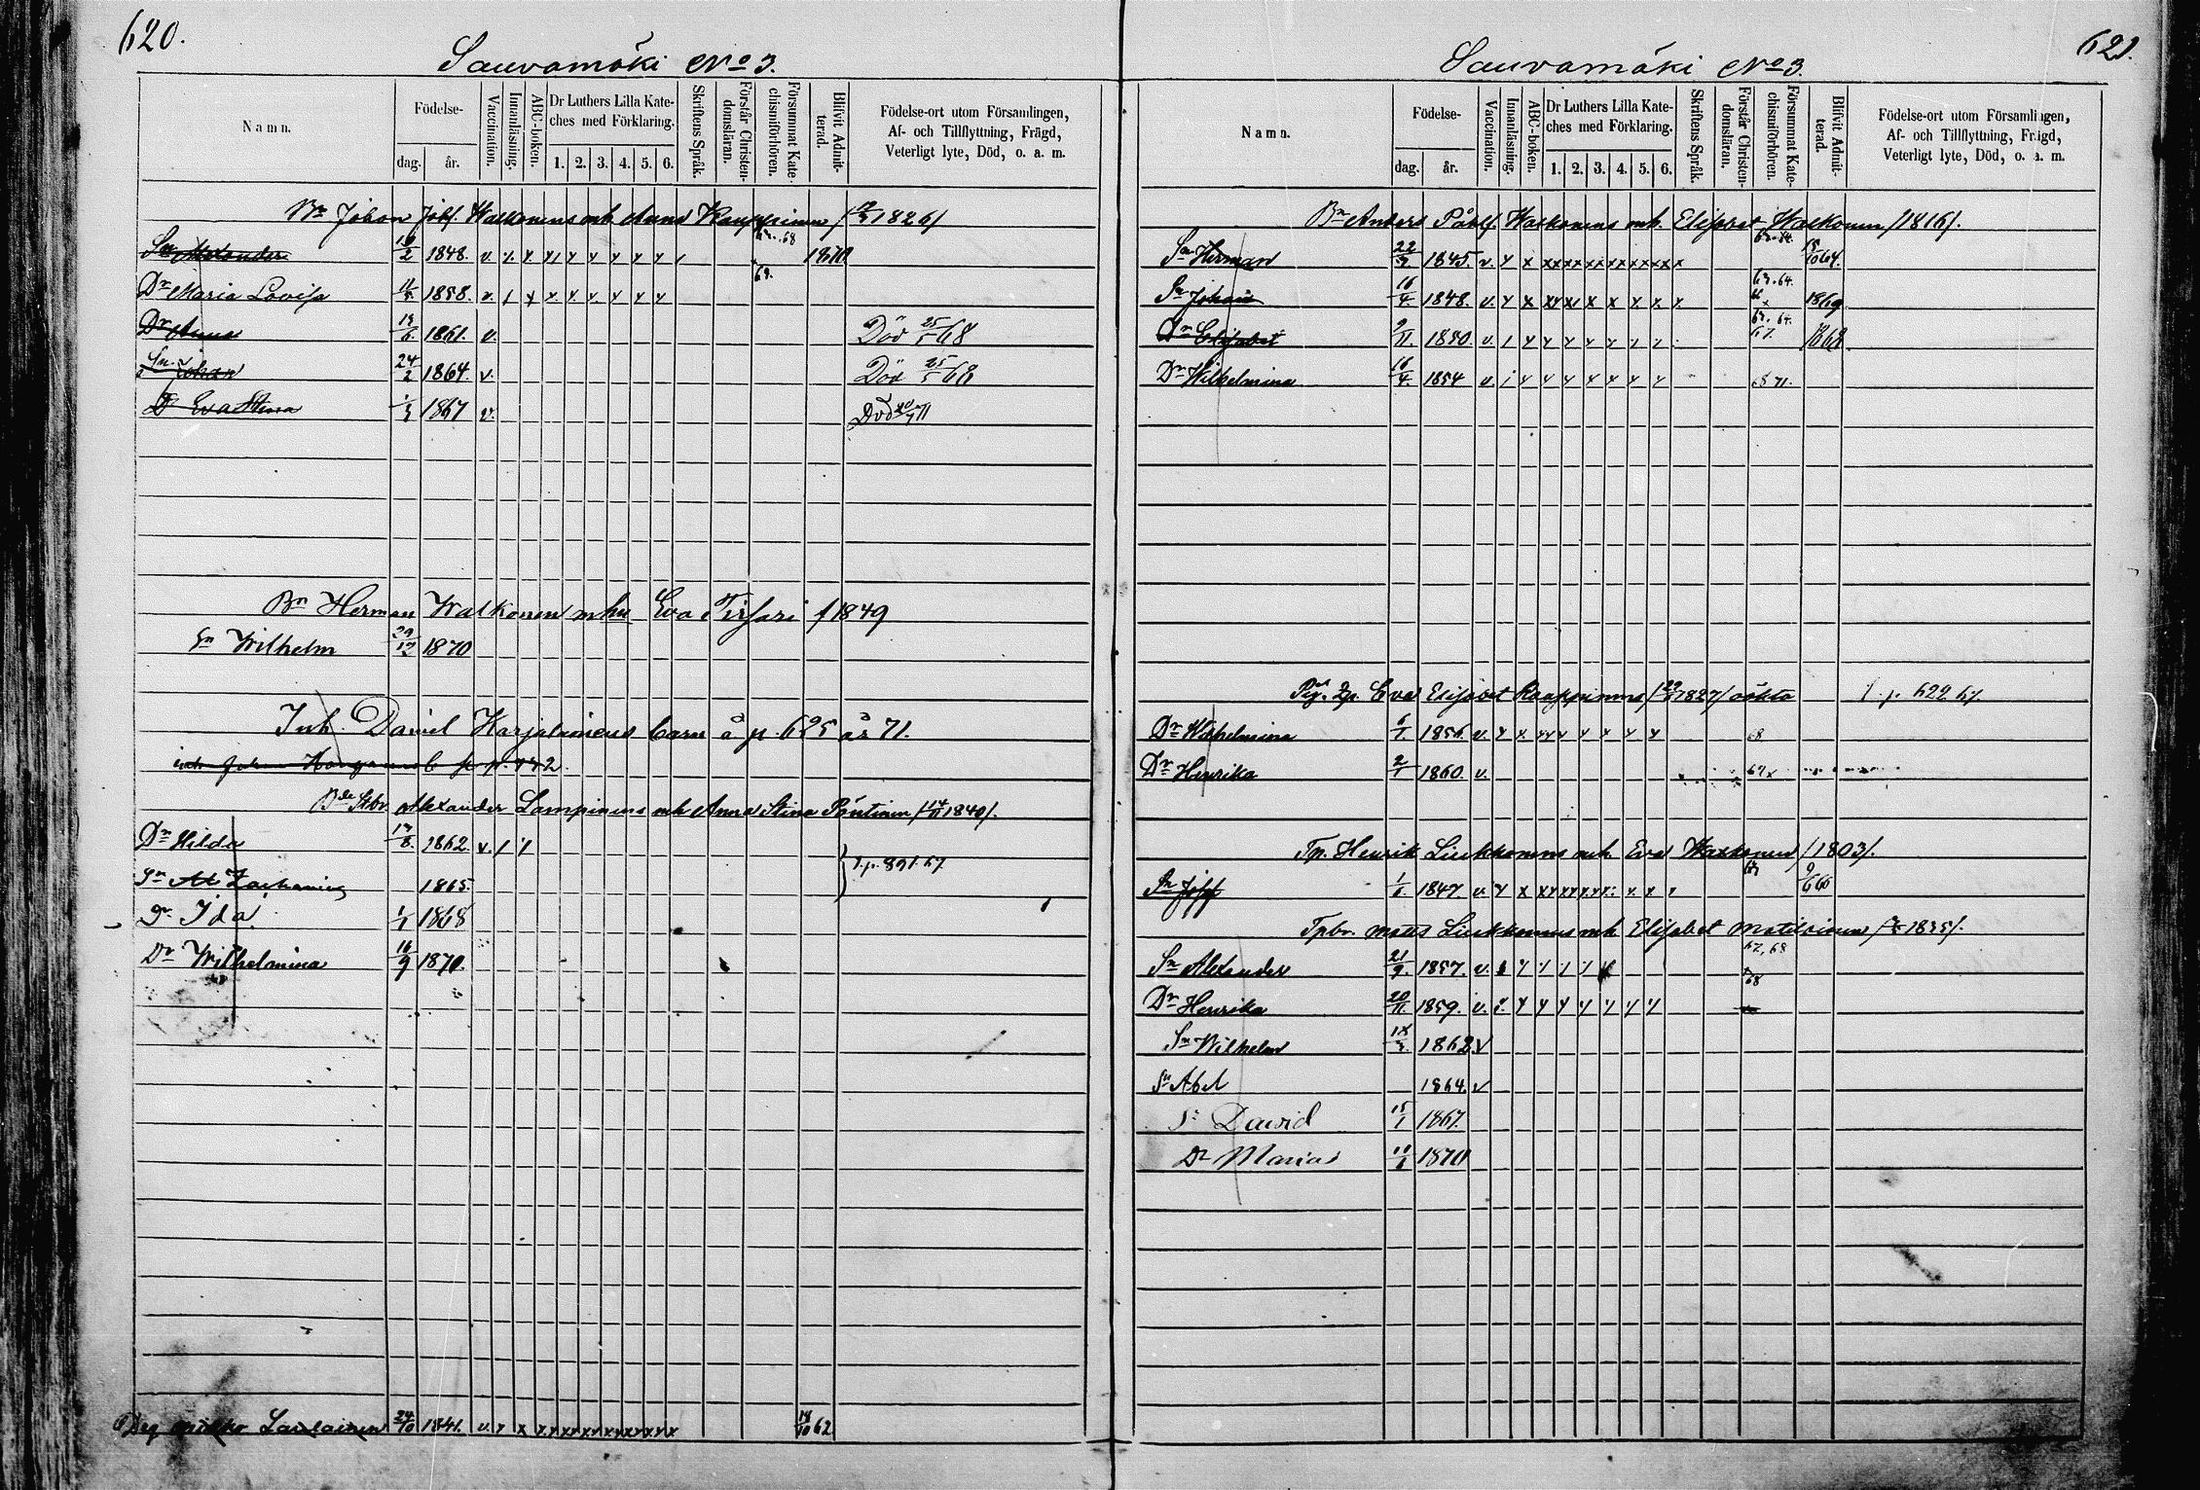 620.
Sauvamäki No 3.
Namn.
Födelse-
dag. år.
Vaccination.
Innanläsning.
ABC-boken.
Dr Luthers Lilla Kate-
ches med Förklaring.
1. 2. 3. 4. 5. 6.
Skriftens Språk.
Förstår Christen-
domsläran.
Försummat Kate-
chismiförhören.
Blifvit Admit-
terad.
Födelse-ort utom Församlingen,
Af- och Tillflyttning, Frägd,
Veterligt lyte, Död, o. a. m.
Bn Johan Walkonens mh Anna Kauppinen 1826/
Sn Alexander 1848. v. 1870
Dr Maria Lovisa 1858. v. 69.
Dr Anna 1861. v. Död 25/5 68
Sn Johan 24/2 1864. v. Död 25/5 68
Dr Eva Stina 1/3 1867 v. Död 71
Bn Herman Walkonen mhu Eva Tirsari f 1849
Sn Wilhelm 1870
Inh. Daniel Karjalainens barn å p 625 år 71.
Alexander Lampinens mh Anna Stina Pöntinen 1840/.
Dr Hilda 1862. v. / /
Sn Zacharias 1865. p. 891 67
Dr Ida 1/1 1868
Dr Wilhelmina 16/9 1870.
Laulainen 24/10 1841. v. 62
621.
Sauvamäki No 3.
Namn.
Födelse-
dag. år.
Vaccination.
Innanläsning.
ABC-boken.
Dr Luthers Lilla Kate-
ches med Förklaring.
1. 2. 3. 4. 5. 6.
Skriftens Språk.
Förstår Christen-
domsläran.
Försummat Kate-
chismiförhören.
Blifvit Admit-
terad.
Födelse-ort utom Församlingen,
Af- och Tillflyttning, Frägd,
Veterligt lyte, Död, o. a. m.
Bn Anders Pålss. Walkonens mh. Elisabet Walkonen /1816/.
Sn Herman 1845. v. 64.
Sn Johan 16/4 1848. v. 1869.
Dr Elisabet 9/11 1850. v. 1868.
Dr Wilhelmina 16/4 1854 v. 71.
Eva Elisabet Kauppinens 1827/ oäkta p. 622 67.
Dr Wilhelmina 6/1 1856. v. 68
Dr Henrika 2/1 1860. v. 67 x
Tp. Henrik Liukkonens mh. Eva Walkonen /1803/.
Sn Josef 1847. v. 66
Tpbr. Mats Liukkonens mh Elisabet Matilainen 1835/.
Sn Alexander 21/9. 1857. v. 67, 68
Dr Henrika 20/11. 1859. v. 68
Sn Wilhelm 1862. v
Sn Abel 1864. v
Sn David 15/1 1867.
Dr Maria 1870